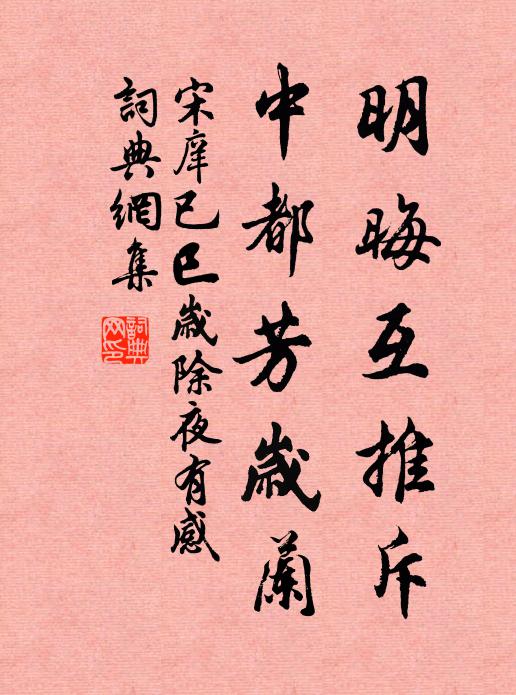 明晦互推斥
中都芳歲蘭
宋庠己巳歲除夜有感
詞典網集
詞典網印